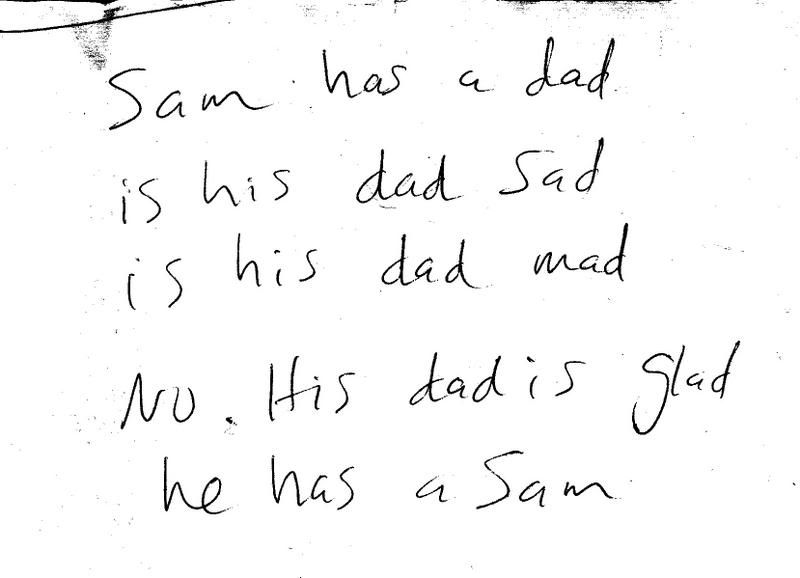 Sam has a dad
is his dad Sad
is his dad mad
No. His dad is glad
he has a Sam